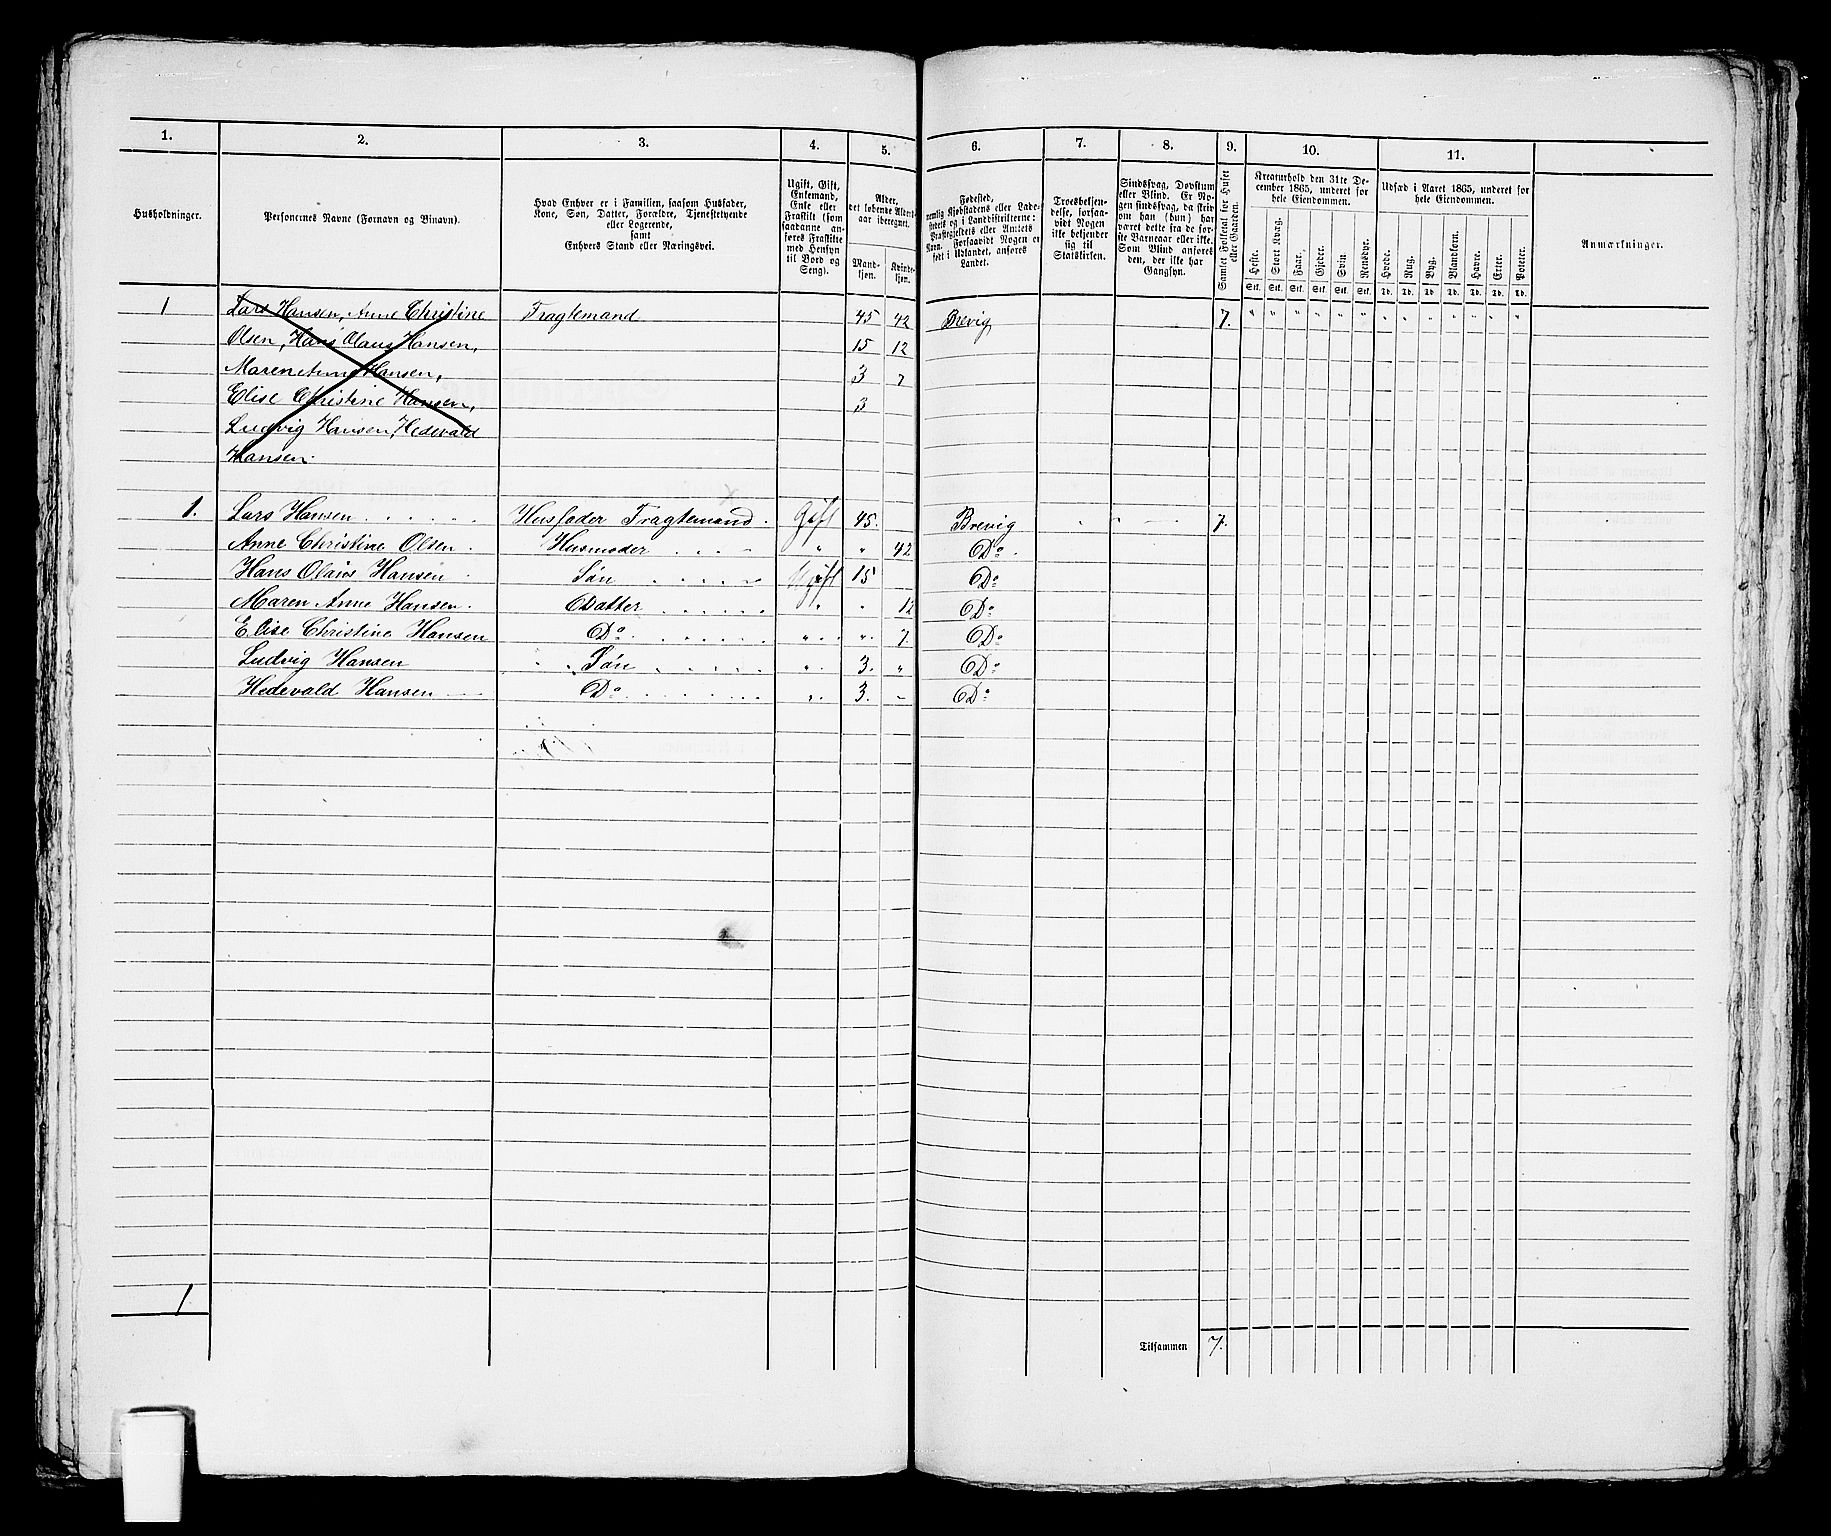 1. 2. 3. 4. 5. 6. 7. 8. 9. 10. 11.
Husholdninger.
Personernes Navne (Fornavn og Binavn).
Hvad Enhver er i Familien, saasom Husfader,
Kone, Søn, Datter, Forældre, Tjenestetyende
eller Logerende,
samt
Enhvers Stand eller Næringsvei.
Ugift, Gift,
Enkemand,
Enke eller
Fraskilt (som
saadanne an-
føres Fraskilte
med Hensyn
til Bord og
Seng).
Alder,
det løbende Alders-
aar iberegnet.
Mand-
kjøn.
Kvinde-
kjøn.
Fødested,
nemlig Kjøbstadens eller Lade-
stedets og i Landdistrikterne:
Præstegjeldets eller Amtets
Navn. Forsaavidt Nogen er
født i Udlandet, anføres
Landet.
Troesbekjen-
delse, forsaa-
vidt Nogen
ikke bekjender
sig til
Statskirken.
Sindssvag, Døvstum
eller Blind. Er No-
gen sindssvag, da skriv
om han (hun) har
været dette fra de før-
ste Barneaar eller ikke.
Som Blind anføres
den, der ikke har
Gangsyn.
Samlet Folketal for Huset
eller Gaarden.
Kreaturhold den 31te De-
cember 1865, underet for
hele Eiendommen.
Heste. Stort Kvæg. Faar. Gjeder. Svin Rensdyr.
Stk. Stk. Stk. Stk. Stk. Stk.
Udsæd i Aaret 1865, underet for
hele Eiendommen.
Hvede. Rug. Byg. Blandkorn. Havre. Erter. Poteter.
Td. Td. Td. Td. Td. Td. Td.
Anmærkninger.
1 Lars Hansen, Anne Christine Fragtemand 45 42 Brevig 7. " " " " " " " " " " " " "
Olsen, Hans Olaus Hansen, 15 12
Maren Anne Hansen, 3 7
Elise Christine Hansen, 3
Ludvig Hansen, Hedevald
Hansen.
1. Lars Hansen Husfader Fragtemand. Gift 45. Brevig 7.
Anne Christine Olsen. Husmoder " " 42 Do.
Hans Olaus Hansen Søn Ugift 15 Do
Maren Anne Hansen. Datter " " 12 Do
Elise Christine Hansen Do. " " 7. Do
Ludvig Hansen Søn " 3. " Do
Hedevald Hansen Do " 3. - Do
1
Tilsammen 7.